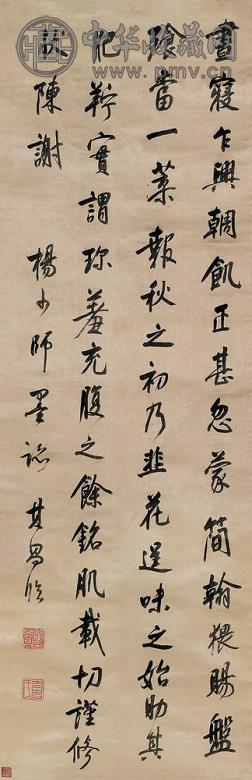 中华收藏网
www.pmv.cn
書寢乍興輖飢正甚忽蒙簡翰猥賜盤
飱當一葉報秋之初乃韭花逞味之始助其
肥羜實謂珍羞充腹之餘銘肌載切謹修
狀陳謝
楊少師墨跡 其昌臨